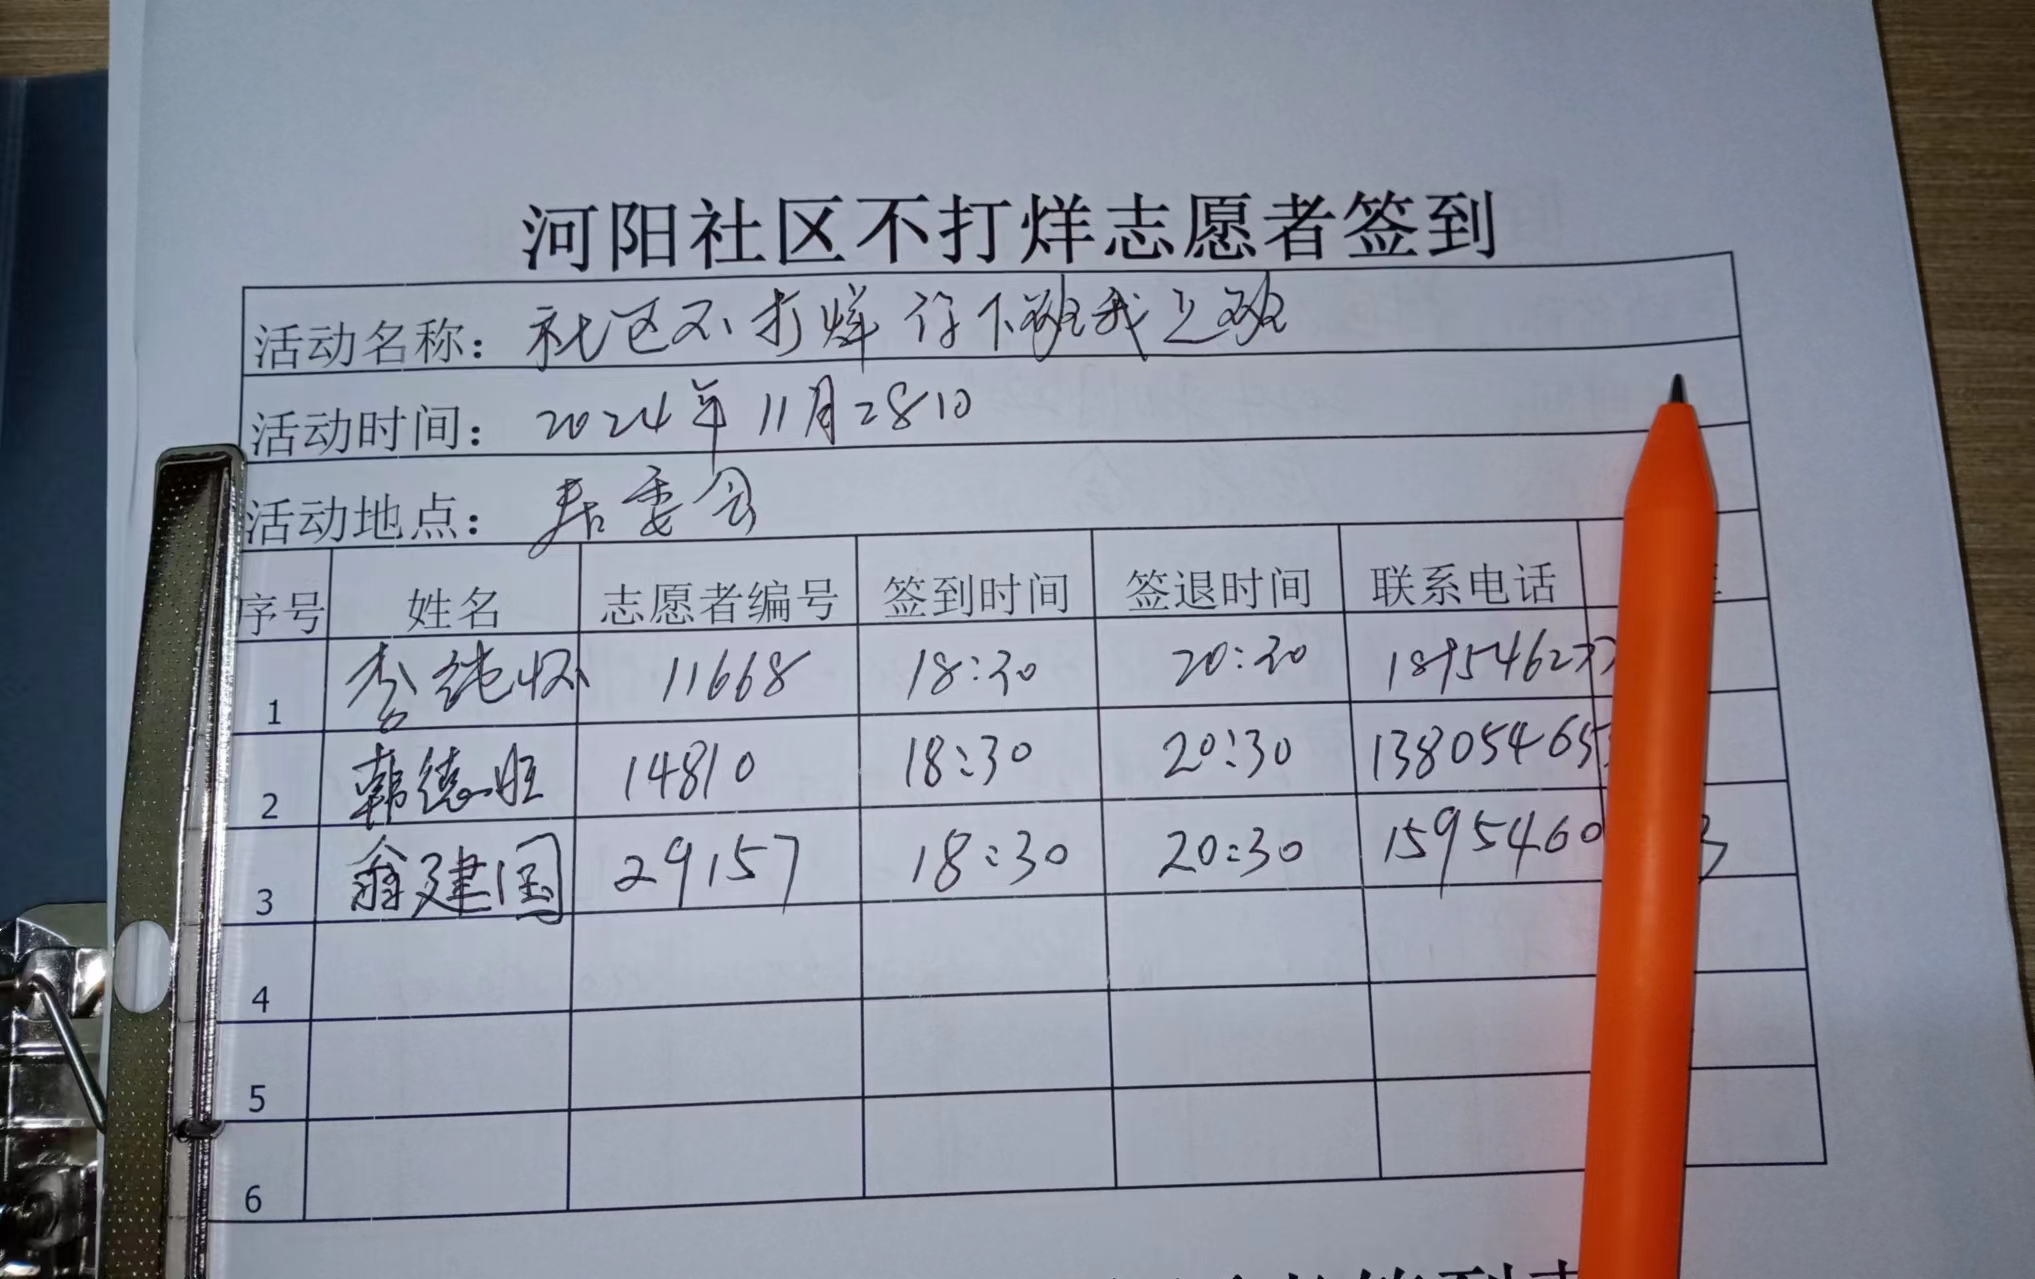 河阳社区不打烊志愿者签到
活动名称：社区不打烊 你下班我上班
活动时间：2024年11月28日
活动地点：居委会
序号 姓名 志愿者编号 签到时间 签退时间 联系电话
1 李纯怀 11668 18:30 20:30 189546277
2 韩德旺 14810 18:30 20:30 138054655
3 翁建国 29157 18:30 20:30 15954600 3
4
5
6